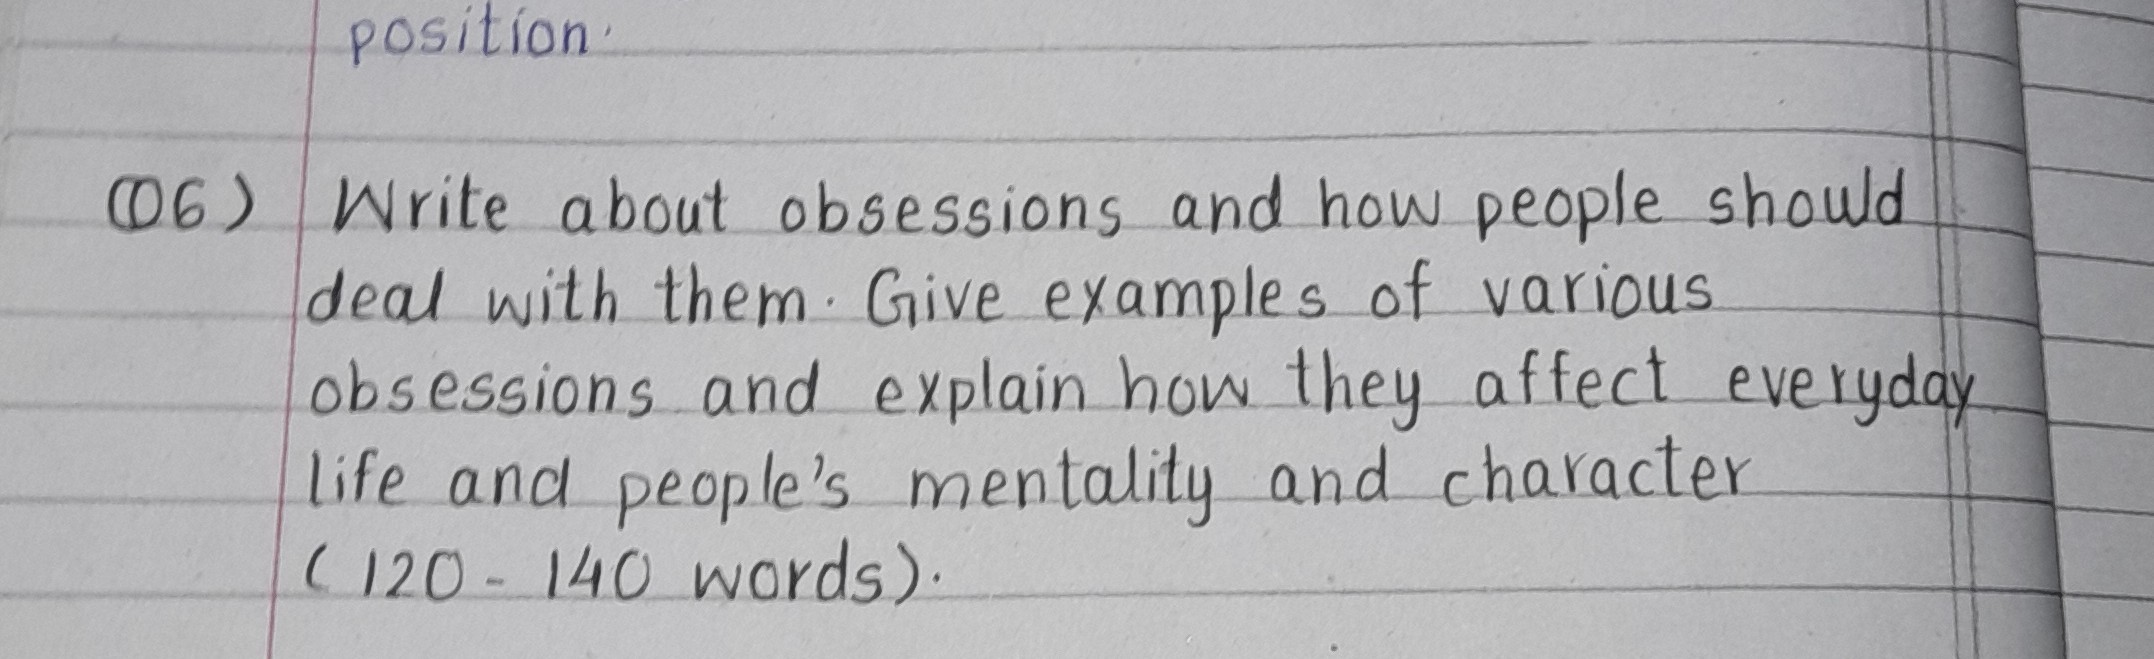 position.
(06) Write about obsessions and how people should
deal with them. Give examples of various
obsessions and explain how they affect everyday
life and people's mentality and character
(120 - 140 words).